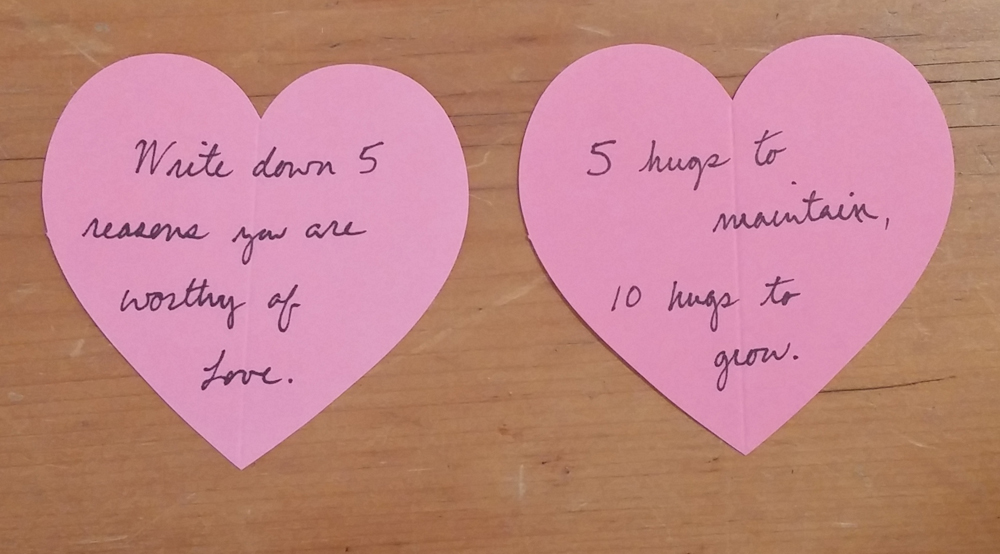 Write down 5
reasons you are
worthy of
Love.
5 hugs to
maintain,
10 hugs to
grow.